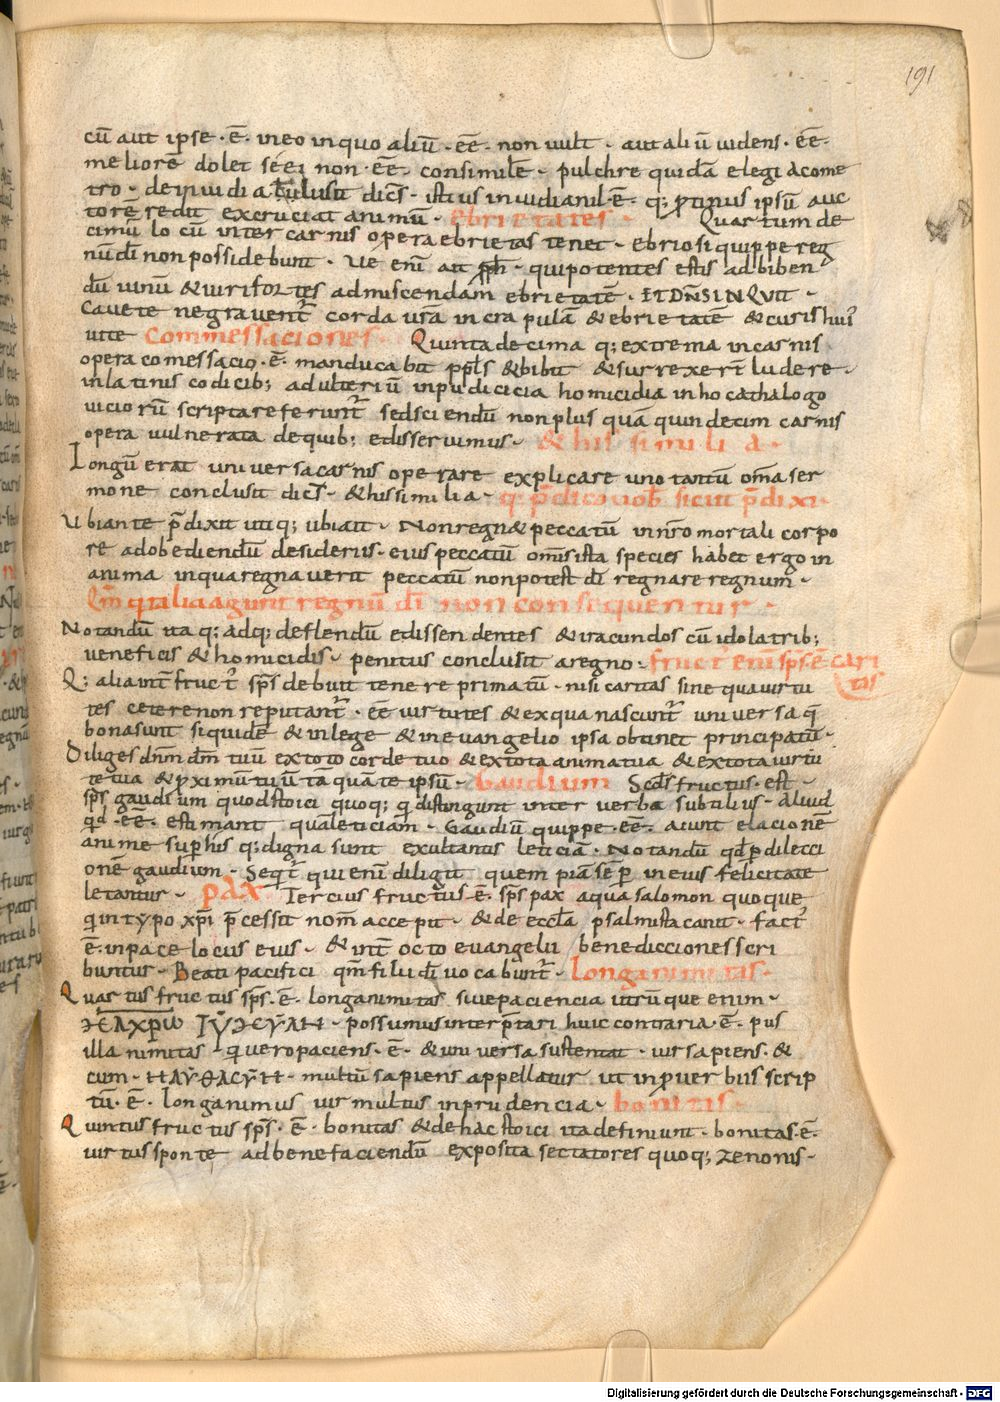 191
cū aut ipse · ē · in eo in quo aliū · eē · non uult · aut aliū uidens · eē ·
meliorē dolet se ei non · eē · consimilē · pulchre quidā elegiacome
tro · de inuidia lusit dicēs · istius inuidia nil · ē · q; protinus ipsū auc
torē redit excruciat animū · ebrietates · Quartum de
cimū locū inter carnis opera ebrietas tenet · ebriosi quippe reg
nū dī non possidebunt · Ue enī ait pph · qui potentes estis ad biben
dū uinū & uiri fortes ad miscendam ebrietatē · ET DN̄S INQUIT ·
Cauete ne grauent̄ corda ur̄a in crapulā & ebrietatē & curis hui'
uite commessaciones · Quinta decima q; extrema in carnis
opera comessacio · ē · manducabit ppl̄s & bibit & surrexer̄t ludere ·
in latinis codicib; adulteriū inpudicicia homicidia in ho cathalogo
uiciorū scripta referunt̄ sed sciendū non plus quā quindecim carnis
opera uulnerata de quib; edisseruimus · & his similia ·
Longū erat uniuersa carnis opera re explicare uno tantū om̄a ser
mone conclusit dicēs · & his similia · q; p̄dico uob̄ sicut p̄dixi ·
Ubi ante p̄dixit utiq; ubi ait · Non regn& peccatū in nr̄o mortali corpo
re ad obediendū desideriis · eius peccatū om̄s ista species habet ergo in
anima in qua regnauerit peccatū non potest dī regnare regnum ·
Qm̄ q talia agunt regnū dī non consequentur ·
Notandū itaq; adq; deflendū edissendentes & iracundos cū idolatrib;
ueneficis & homicidis · penitus conclusit a regno · fruct' enī sps̄ · ē cari
tas
Q; alia int̄ fruct' sps̄ debuit tenere primatū · nisi caritas sine qua uirtu
tes cetere non reputant̄ · eē uirtutes & ex qua nascunt̄ uniuersa q̄
bona sunt siquidē & in lege & in euangelio ipsa obtinet principatū ·
Diliges dn̄m dm̄ tuū ex toto corde tuo & ex tota anima tua & ex tota uirtu
te tua & proximū tuū tā quā te ipsū · Gaudium Scds fructus · est ·
sps̄ gaudium quod stoici quoq; q̄ distingunt inter uerba subtilius · aliud
qd̄ · eē · estimant quā leticiam · Gaudiū quippe · eē · aiunt elacionē
anime sup his q; digna sunt exultantis leticiā · Notandū qd̄ p dilecci
onē gaudium · Seqt̄ qui enī diligit quempiā sēp in eius felicitate
letantur · pax Tercius fructus · ē · sps̄ pax a qua salomon quoque
q in typo xp̄i p̄cessit nom̄ accepit · & de eccl̄a psalmista canit · fact'
ē · in pace locus eius · & int̄ octo euangelii benedicciones scri
buntur · Beati pacifici qm̄ filii dī uocabunt̄ · longanimitas ·
Quartus fructus sps̄ · ē · longanimitas siue paciencia utrūque enim ·
possumus interp̄tari huic contraria · ē · pus
illanimitas · q uero paciens · ē · & uniuersa sustentat · uir sapiens · &
cum · multū sapiens appellatur ut in prouerbiis scrip
tū · ē · longanimus uir multus in prudencia · bonitis ·
Quintus fructus sps̄ · ē · bonitas & de hac stoici ita definiunt · bonitas · ē ·
uirtus sponte ad benefaciendū exposita sectatores quoq; zenonis ·
Digitalisierung gefördert durch die Deutsche Forschungsgemeinschaft - DFG